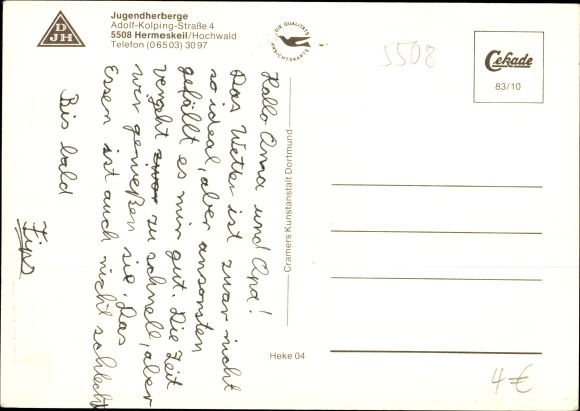 DJH
Jugendherberge
Adolf-Kolping-Straße 4
5508 Hermeskeil/Hochwald
Telefon (06503) 3097
DIE QUALITÄTS
ANSICHTSKARTE
5508
Cekade
83/10
Hallo Oma und Opa!
Das Wetter ist zwar nicht
so ideal, aber ansonsten
gefällt es mir gut. Die Zeit
vergeht zwar zu schnell, aber
wir genießen sie. Das
Essen ist auch nicht schlecht
Bis bald
Fips
Cramers Kunstanstalt Dortmund
Heke 04
4 €